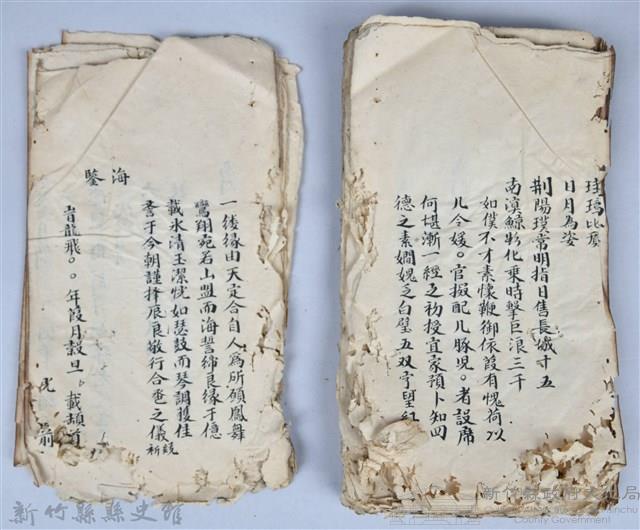 珪璋比秀
日月為姿
荆陽璞常明指日售長媙寸五
南溟鯤物化乗時擊巨浪三千
如僕不才素慷鞭御依葭有愧荷以
儿令媛。官掇配儿豚児。者設席
何堪漸一經之初授宜家預卜知四
德之素嫻媿乏白璧五双字望紅
海
鑒
一絲緣由天定合自人為所願鳳舞
鸞翔宛若山盟而海誓締良緣于億
載氷清玉潔恍如瑟鼓而琴調騰佳
言于今朝謹擇辰良敬行合卺之儀
兢
祈
旹龍飛。。年葭月穀旦
載頴首
光
前
新竹縣縣史館
新竹縣政府文化局
Cultural Affairs Bureau, Hsinchu
County Government